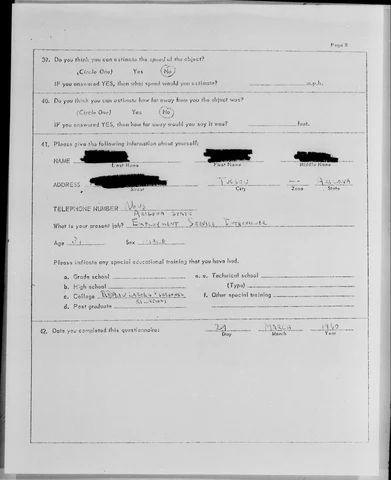 Page 8
39. Do you think you can estimate the speed of the object?
(Circle One) Yes No
IF you answered YES, then what speed would you estimate? m.p.h.
40. Do you think you can estimate how far away from you the object was?
(Circle One) Yes No
IF you answered YES, then how far away would you say it was? feet.
41. Please give the following information about yourself:
NAME
Last Name First Name Middle Name
ADDRESS TUCSON -- ARIZONA
Street City Zone State
TELEPHONE NUMBER NONE
ARIZONA STATE
What is your present job? EMPLOYMENT SERVICE INTERVIEWER
Age Sex MALE
Please indicate any special educational training that you have had.
a. Grade school e. Technical school
b. High school (Type)
c. College f. Other special training
RELATIONS
d. Post graduate
42. Date you completed this questionnaire: 29 MARCH 1960
Day Month Year